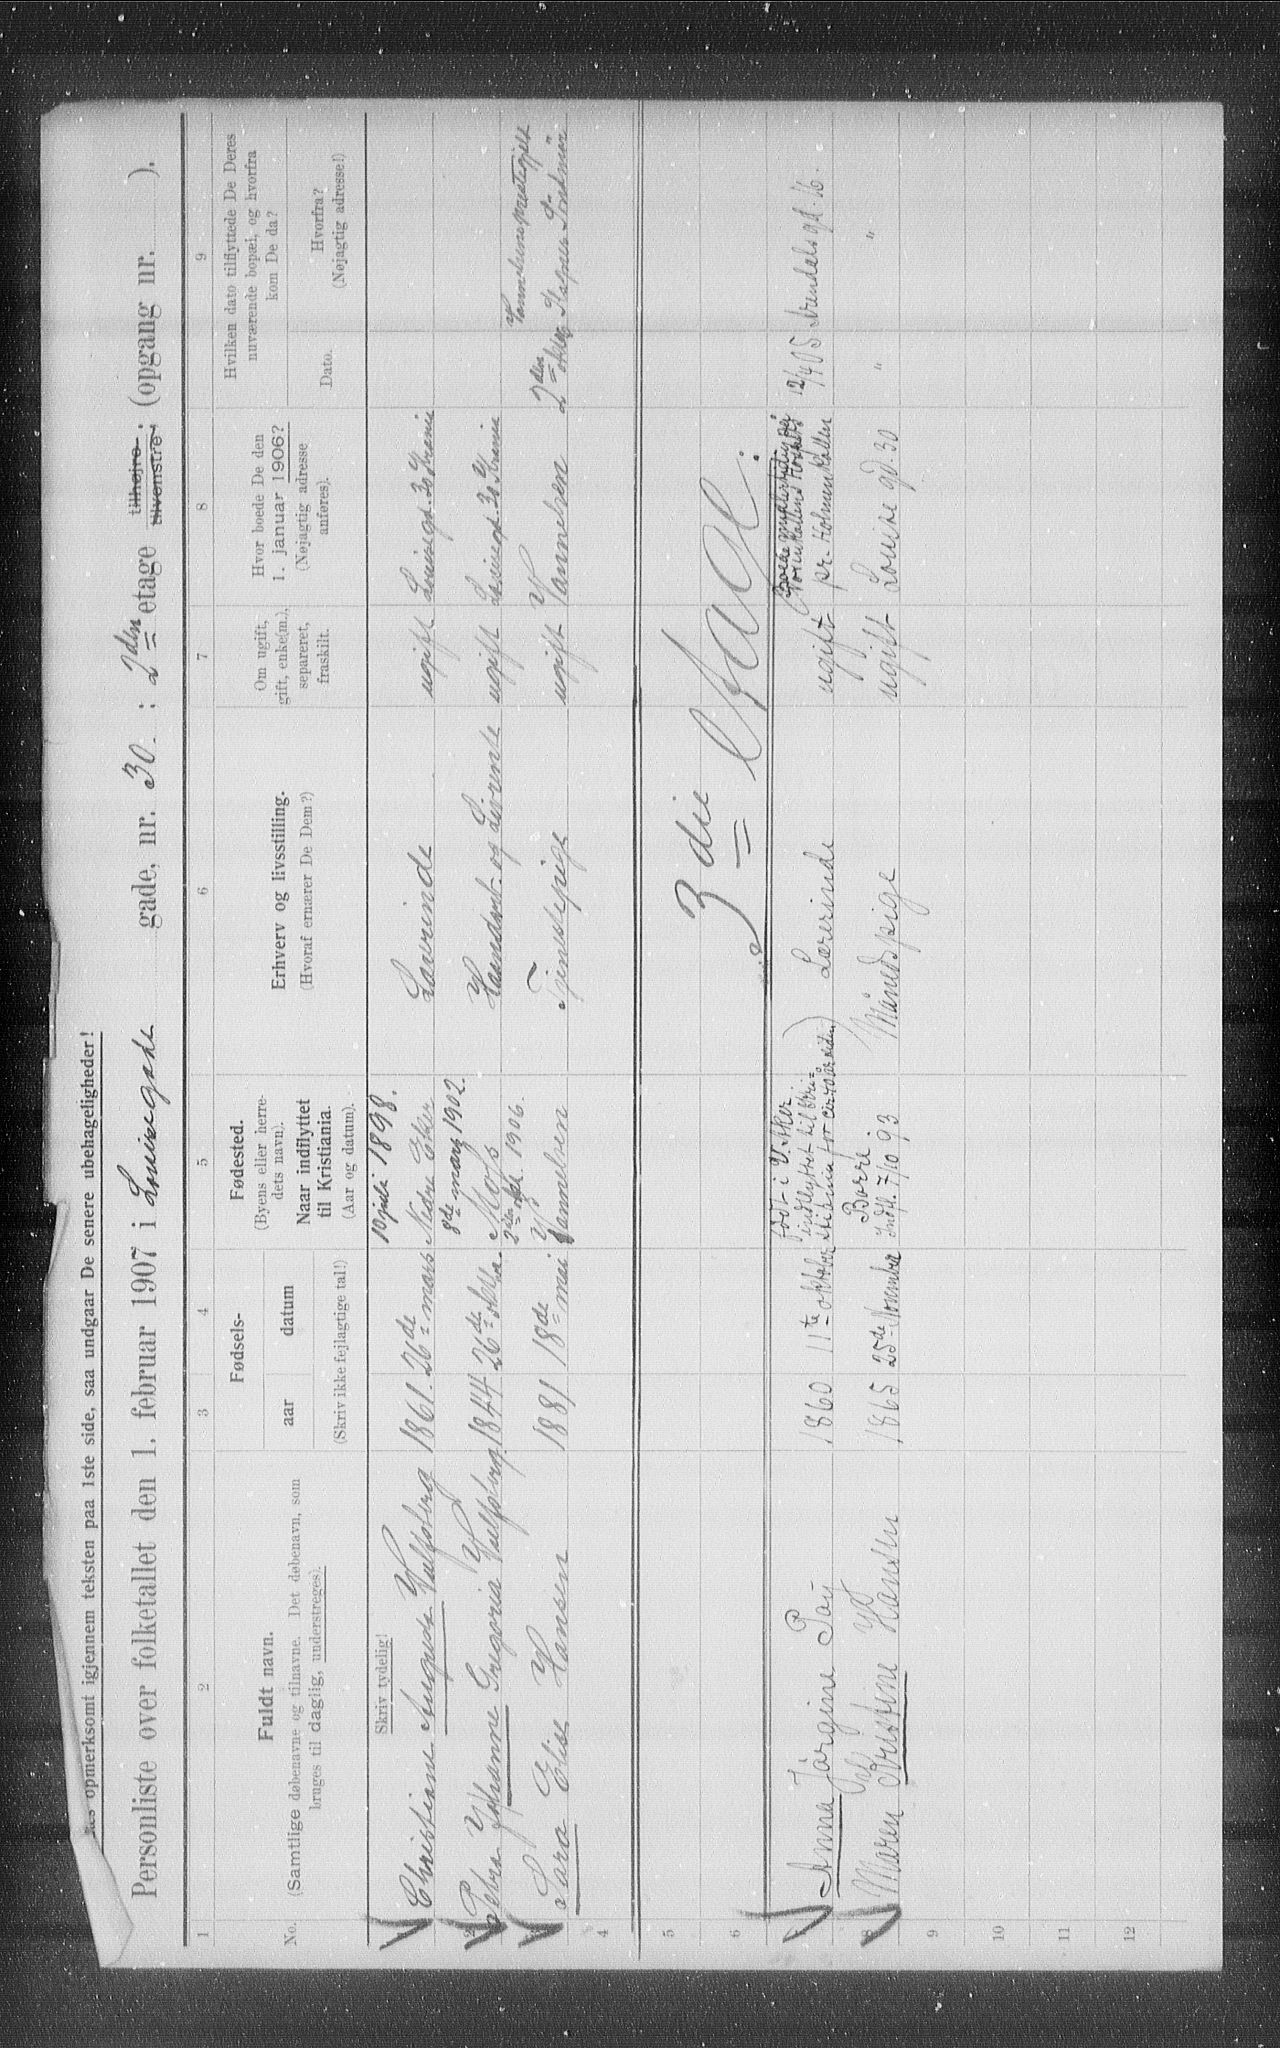 opmerksomt igjennem teksten paa 1ste side, saa undgaar De senere ubehageligheder!
Personliste over folketallet den 1. februar 1907 i Louisegade gade, nr. 30. : 2den etage tilhøjre tilvenstre ; (opgang nr. ).
1 2 3 4 5 6 7 8 9
No.
Fuldt navn.
(Samtlige døbenavne og tilnavne. Det døbenavn, som
bruges til daglig, understreges).
Fødsels-
aar datum
(Skriv ikke fejlagtige tal!)
Fødested.
(Byens eller herre-
dets navn).
Naar indflyttet
til Kristiania.
(Aar og datum).
Erhverv og livsstilling.
(Hvoraf ernærer De Dem?)
Om ugift,
gift, enke(m.),
separeret,
fraskilt.
Hvor boede De den
1. januar 1906?
(Nøjagtig adresse
anføres).
Hvilken dato tilflyttede De Deres
nuværende bopæl, og hvorfra
kom De da?
Dato.
Hvorfra?
(Nøjagtig adresse!)
Skriv tydelig!
10 juli 1898.
Christiane Augusta Wulfsberg 1861. 26de mars Nedre Eker Lærerinde ugift Louisegd. 30 Krania
8de mars 1902.
2 Petra Johanne Gregoria Wulfsberg 1844 26de Moss og ugift Louisegd. 30 Krania
2den 1906.
3 Sara Elise Hansen 1881 18de mai Vannelsen Tjenestepige ugift Vannelsen 2den
4
5
6 3die Etage.
Født i V. Aker
indflyttet til Kri-
7 Anna Jörgine Pay 1860 11te oktober stiania for cir. 40 år siden) Lærerinde ugift pr. Holmenkollen 12/4 05 Arendalsgd. 16.
Borre.
8 Maren Kristine Hansen 1865 25de November Indfl. 7/10 93 Månedspige ugift Louise gd. 30 " "
9
10
11
12